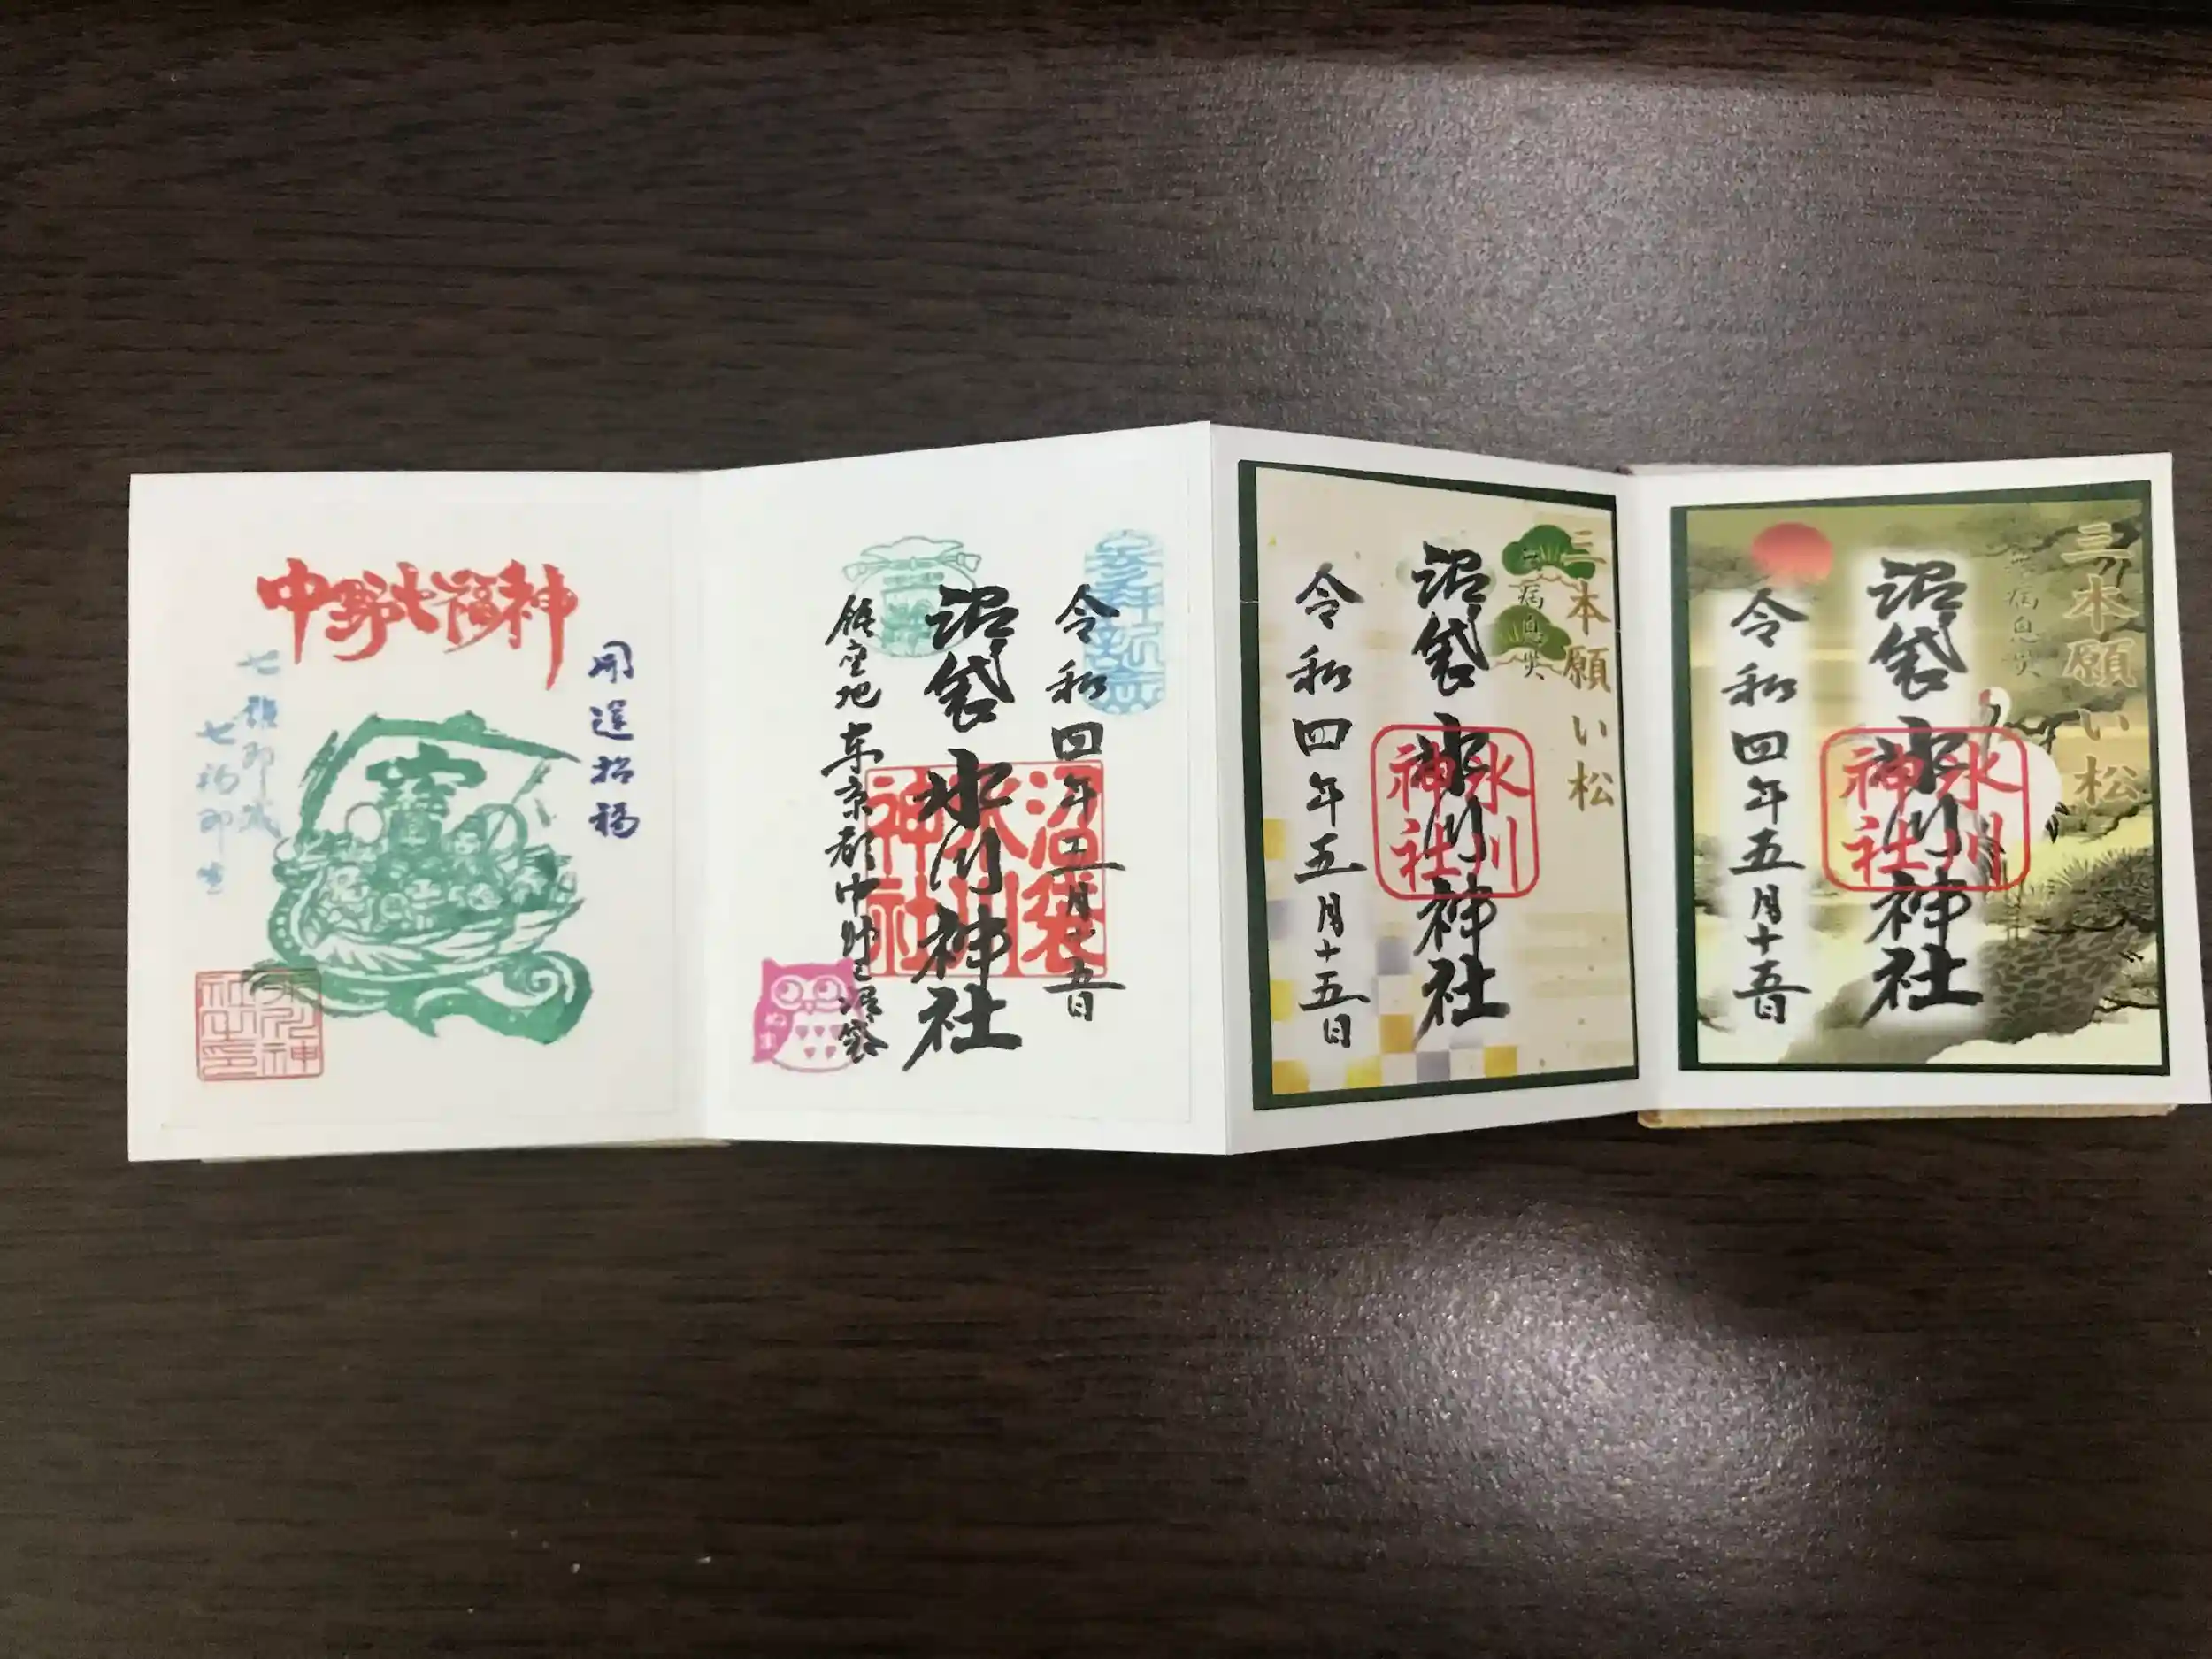 中野七福神
開運招福
七難即滅
七福即生
令和四年五月十五日
沼袋 氷川神社
沼袋氷川神社
鎮座地東京都中野区沼袋
三本願い松
無病息災
沼袋 氷川神社
氷川神社
令和四年五月十五日
三本願い松
無病息災
沼袋 氷川神社
氷川神社
令和四年五月十五日